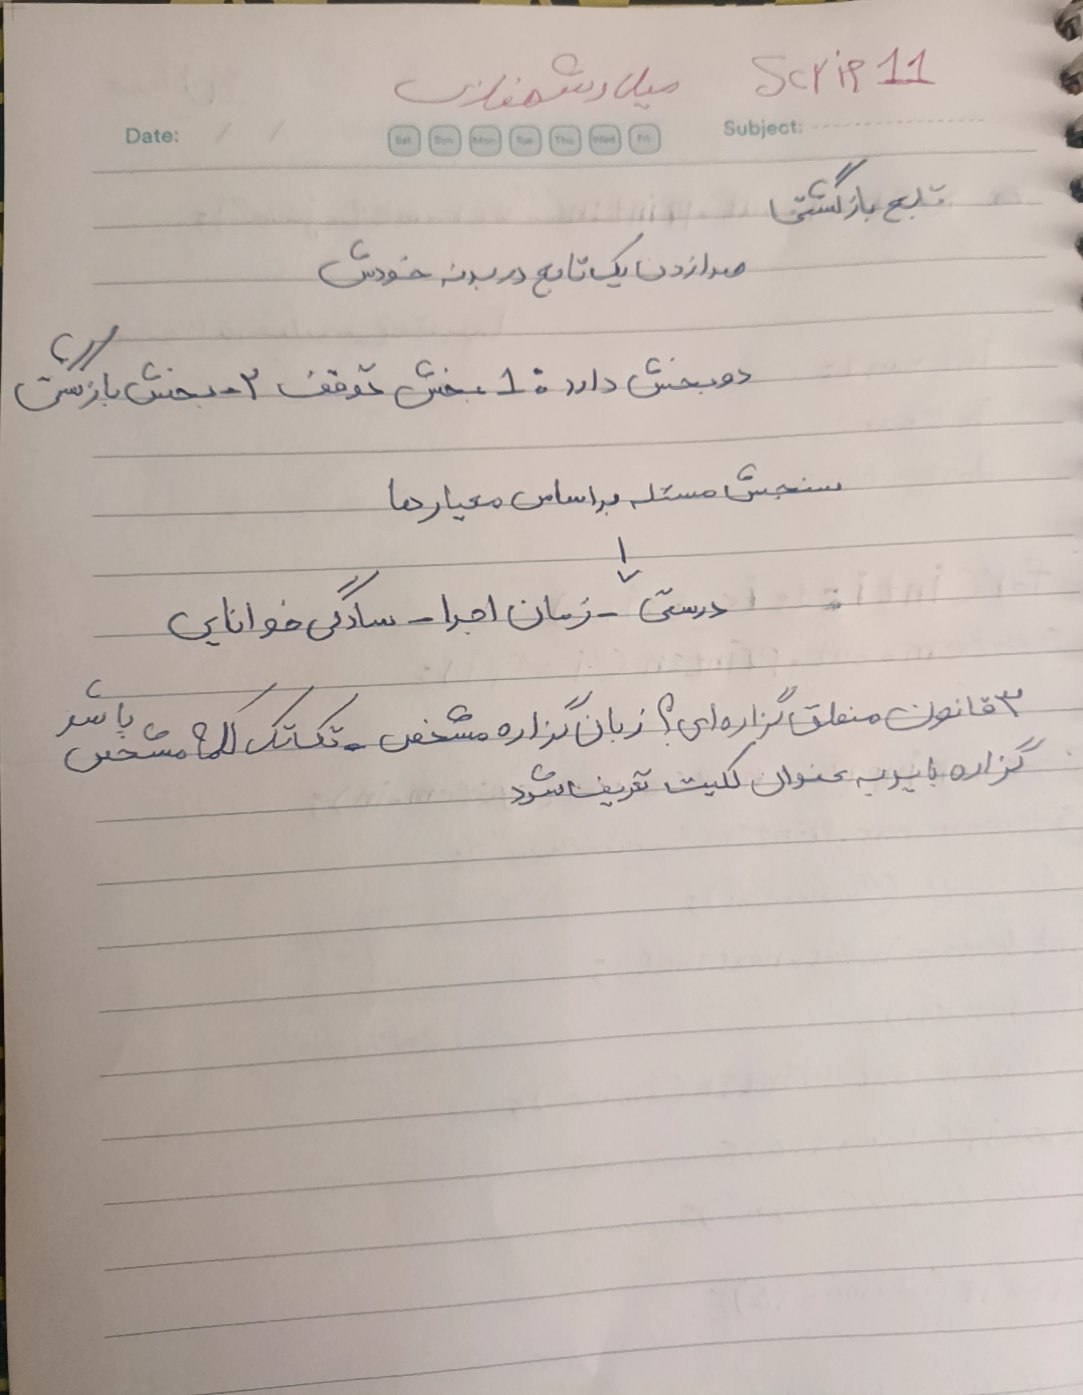 Scrip 11 میلاد
Date: / / Sat Sun Mon Tue Thu Wed Fri Subject:
تابع بازگشتی
صدا زدن یک تابع در بدنه خودش
دو بخش دارد: 1. بخش توقف ۲- بخش بازگشتی
سنجش مسئله بر اساس معیارها
درستی - زمان اجرا - سادگی خوانایی
۳ قانون منطق گزاره ای؟ زبان گزاره مشخص - تک تک کلمات مشخص باشد
گزاره باید به عنوان کلیت تعریف شود